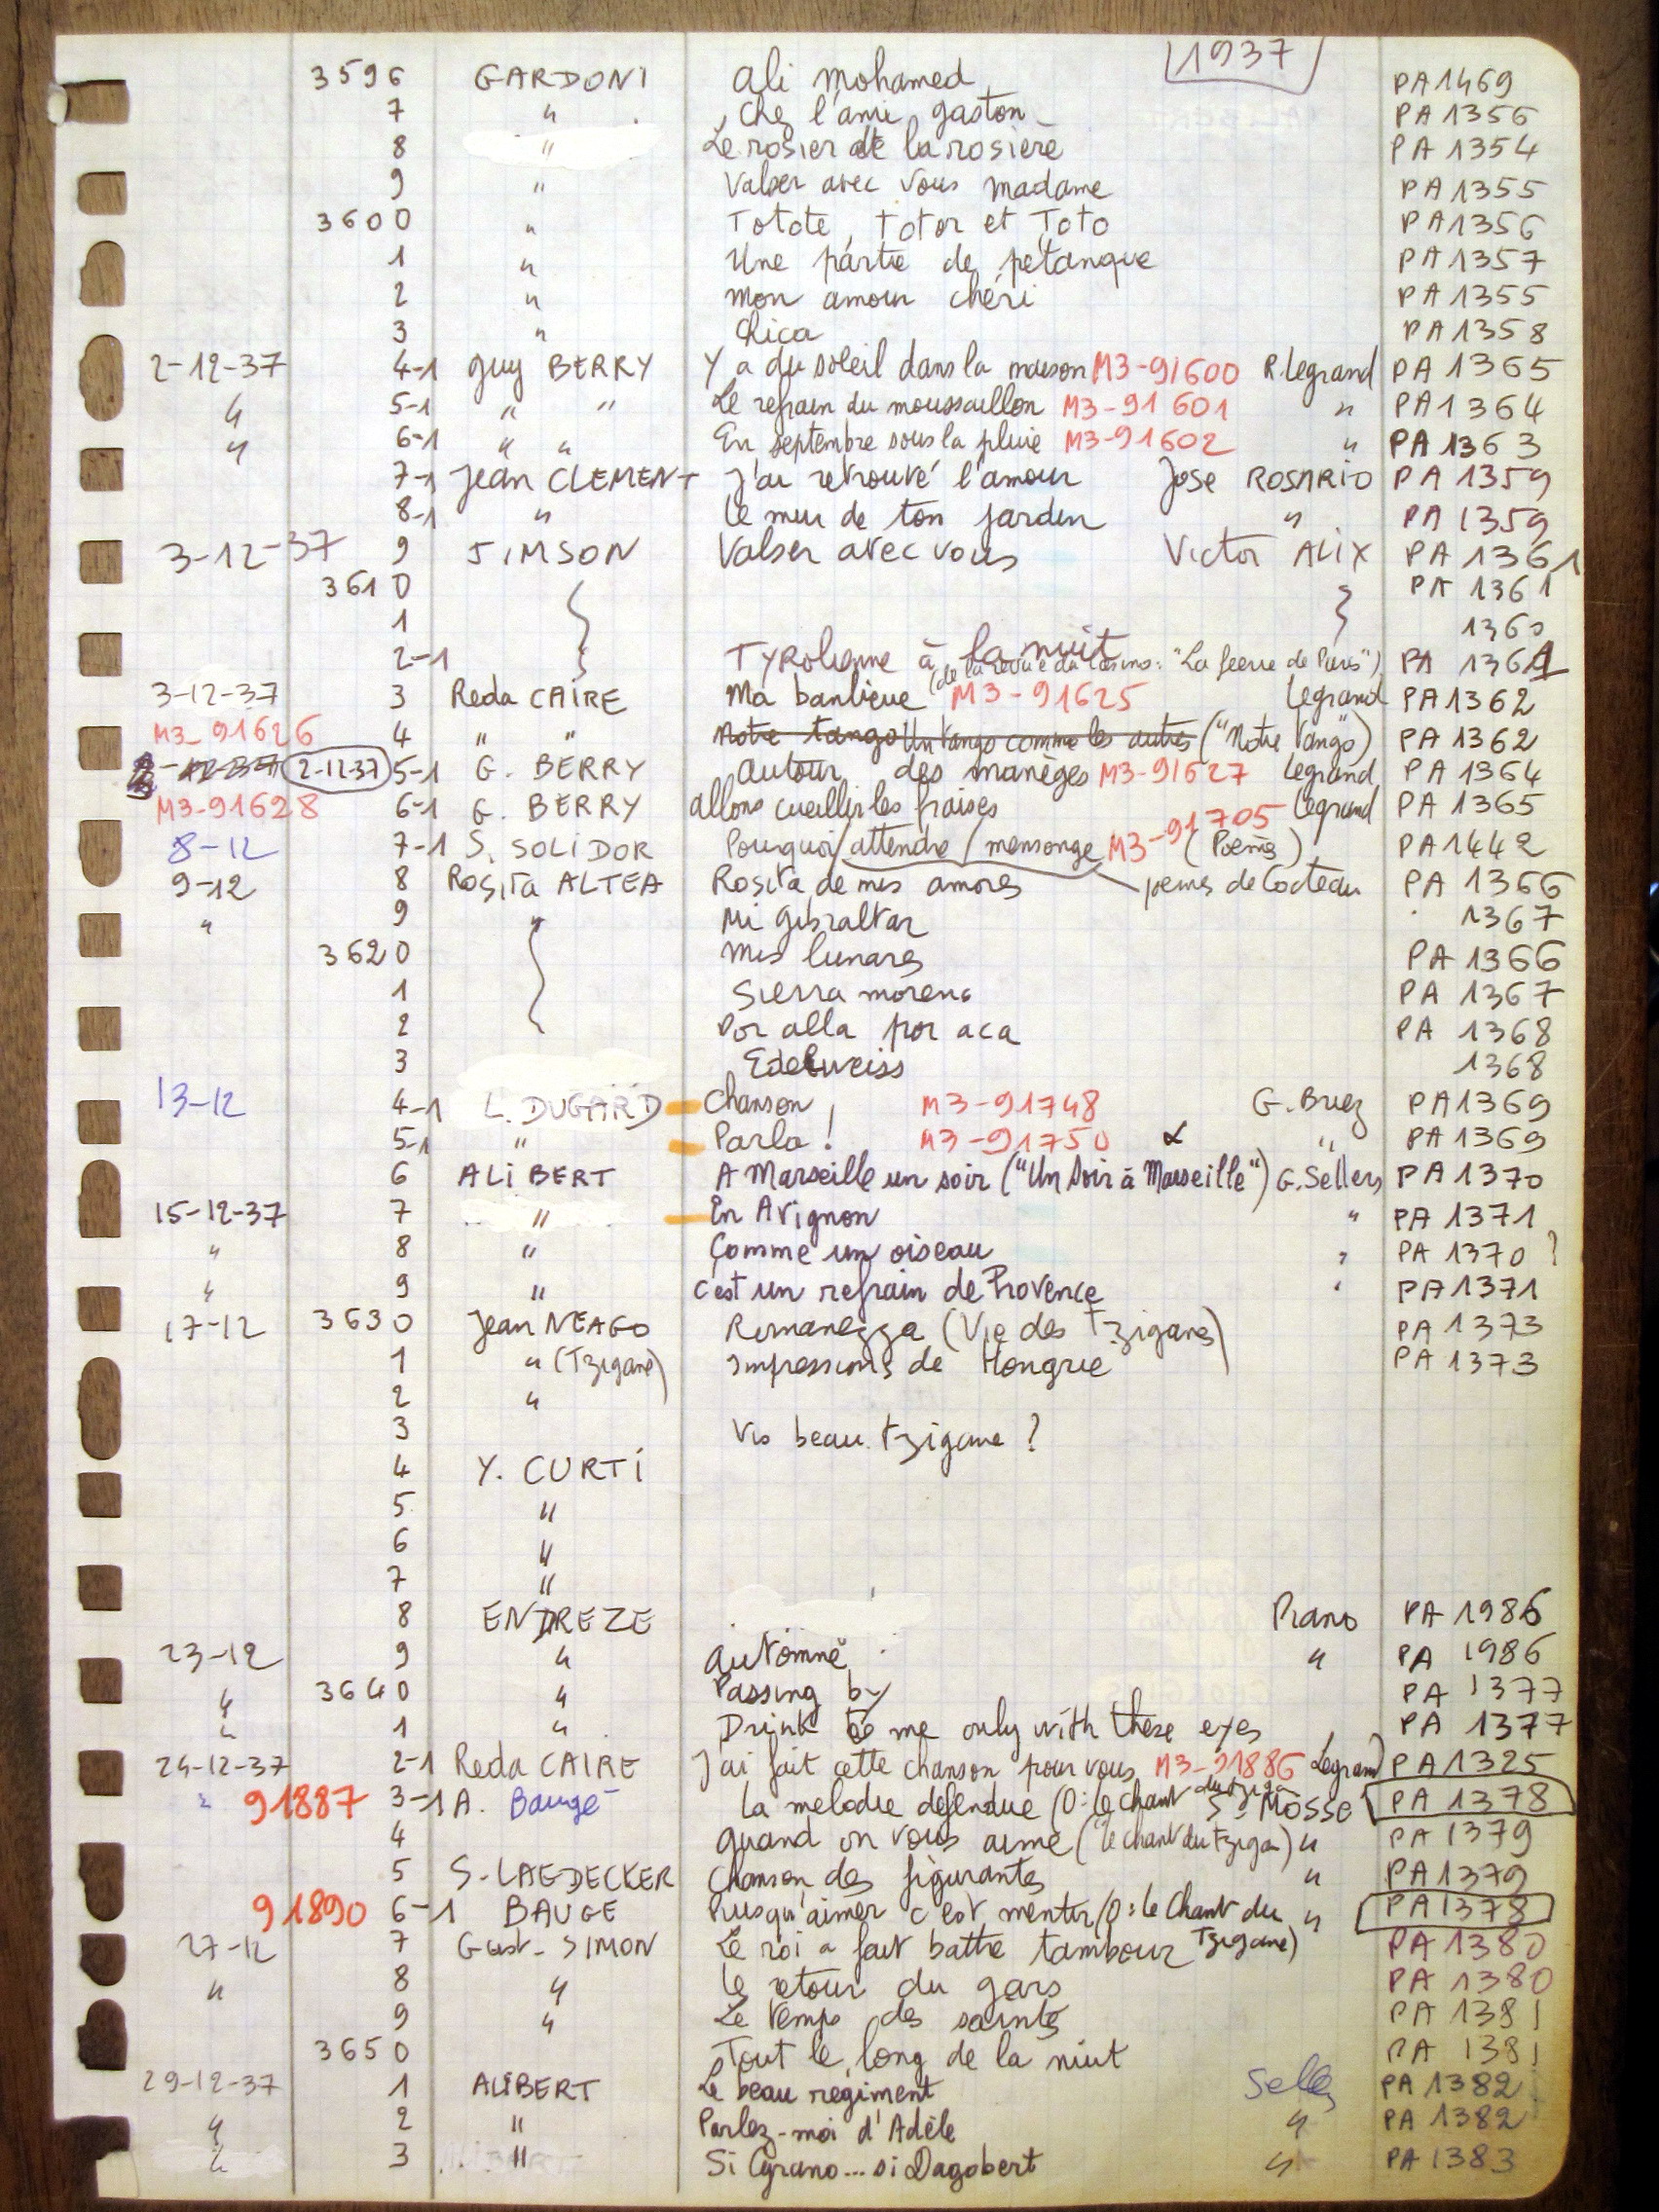 1937
3596 GARDONI Ali Mohamed PA 1469
7 " Chez l'ami gaston PA 1356
8 " Le rosier de la rosière PA 1354
9 " Valser avec vous madame PA 1355
3600 " Totote, Totor et Toto PA 1356
1 " Une partie de pétanque PA 1357
2 " Mon amour chéri PA 1355
3 " Chica PA 1358
2-12-37 4-1 Guy BERRY Y a du soleil dans la maison M3-91600 R. Legrand PA 1365
" 5-1 " " Le refrain du moussaillon M3-91601 " PA 1364
" 6-1 " " En septembre sous la pluie M3-91602 " PA 1363
7-1 Jean CLEMENT J'ai retrouvé l'amour Jose ROSARIO PA 1359
8-1 " Le mur de ton jardin " PA 1359
3-12-37 9 JIMSON Valser avec vous Victor ALIX PA 1361
3610 PA 1361
1 1360
2-1 TYRolienne à la nuit (de la revue du Casino: "La féerie de Paris") PA 1361
3-12-37 3 Reda CAIRE Ma banlieue M3-91625 Legrand PA 1362
M3-91626 4 " " Notre tango Un tango comme les autres ("Notre tango") PA 1362
2-12-37 5-1 G. BERRY Autour des manèges M3-91627 Legrand PA 1364
M3-91628 6-1 G. BERRY allons cueillir les fraises Legrand PA 1365
8-12 7-1 S. SOLIDOR Pourquoi / attendre / mensonge M3-91705 (Poèmes) PA 1442
9-12 8 Rosita ALTEA Rosita de mis amores poèmes de Cocteau PA 1366
" 9 " Mi gibraltar 1367
3620 Mis lunares PA 1366
1 Sierra morena PA 1367
2 Por alla por aca PA 1368
3 Edelweiss 1368
13-12 4-1 L. DUGARD Chanson ! M3-91748 G. Briez PA 1369
5-1 " Parla ! M3-91750 " PA 1369
6 ALIBERT A Marseille un soir ("Un Soir à Marseille") G. Sellers PA 1370
15-12-37 7 " En Avignon " PA 1371
" 8 " Comme un oiseau " PA 1370 ?
" 9 " C'est un refrain de Provence " PA 1371
17-12 3630 Jean NEAGO Romanezza (Vie des Tziganes) PA 1373
1 " (Tzigane) Impressions de Hongrie PA 1373
2 "
3 Vis beau tzigane ?
4 Y. CURTI
5 "
6 "
7 "
8 ENDREZE Piano PA 1986
23-12 9 " Automne " PA 1986
" 3640 " Passing by PA 1377
" 1 " Drink to me only with these eyes PA 1377
24-12-37 2-1 Reda CAIRE J'ai fait cette chanson pour vous M3-91886 Legrand PA 1325
" 91887 3-1 A. Baugé La melodie defendue (O: le chant du tzigane S. MOSSE PA 1378
4 quand on vous aime (le chant du tzigane) " PA 1379
5 S. LAEDECKER Chanson des figurantes " PA 1379
91890 6-1 BAUGE Puisqu'aimer c'est mentir (O: le Chant du Tzigane) " PA 1378
27-12 7 Gust. SIMON Le roi a fait battre tambour PA 1380
" 8 " Le retour du gars PA 1380
9 " Le temps des saints PA 1381
3650 Tout le long de la nuit PA 1381
29-12-37 1 ALIBERT Le beau régiment Sellers PA 1382
" 2 " Parlez-moi d'Adèle " PA 1382
" 3 " Si Cyrano... si Dagobert " PA 1383